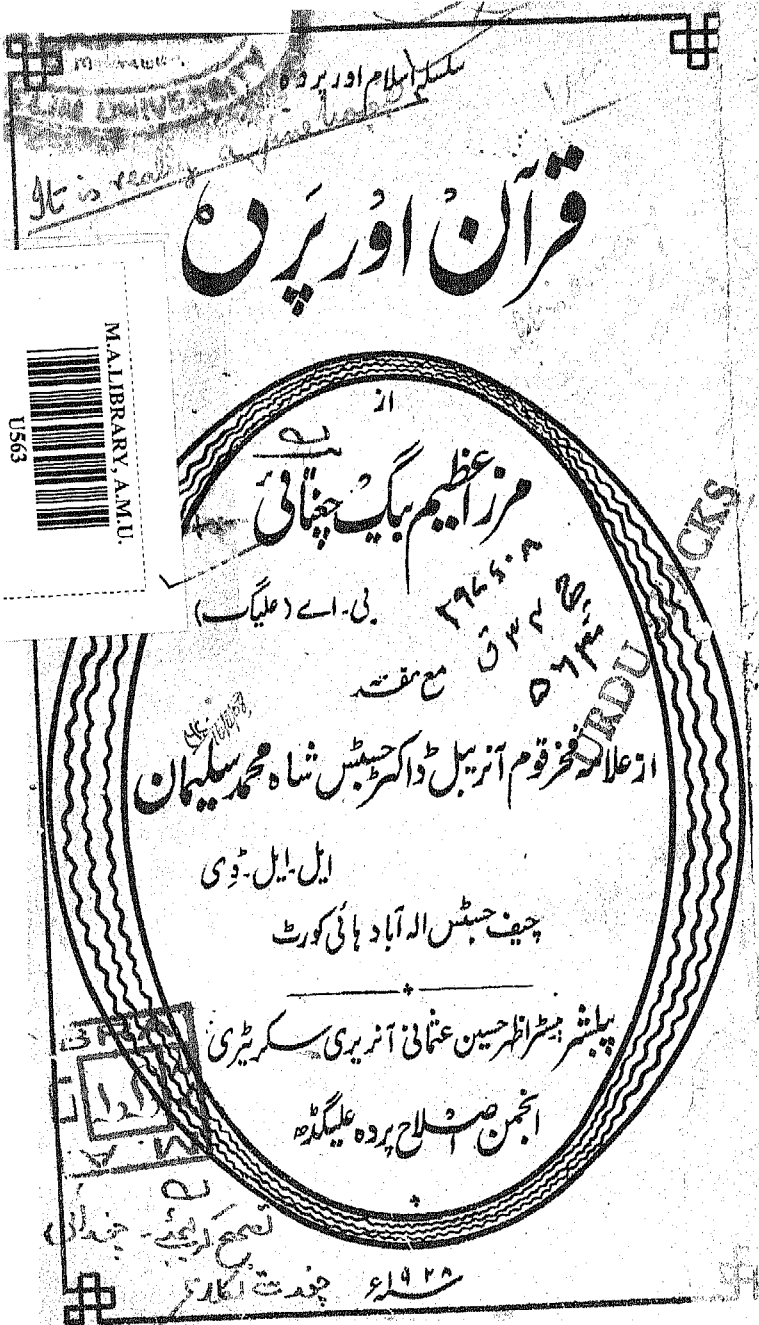 سلسلہ اسلام اور پردہ
It is really a fine
قرآن اور پردہ
M.A.LIBRARY, A.M.U.
U563
از
مرزا عظیم بیگ چغتائی
بی۔ اے (علیگ)
۲۹۷۶۰۸
۳۲ ق
مع مقدمہ
URDU STACKS
از علامہ فخر قوم آنریبل ڈاکٹر جسٹس شاہ محمد سلیمان
ایل۔ایل۔ڈی
چیف جسٹس الہ آباد ہائی کورٹ
پبلشر مسٹر اظہر حسین عثمانی آنریری سکریٹری
انجمن اصلاح پردہ علیگڈھ
۱۹۲۸ء